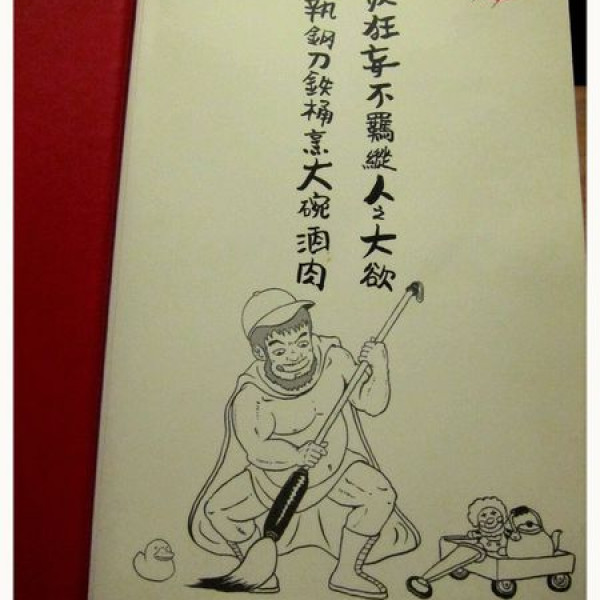 狂妄不羈縱人之大欲
執鋼刀鉄桶烹大碗酒肉